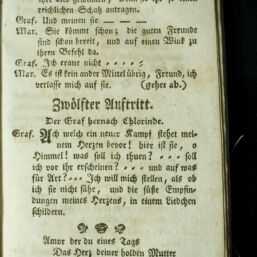 reichlichen Schatz antragen.
Graf. Und meinen sie — — —
Mar. Sie kömmt schon; die guten Freunde
sind schon bereit, und auf einen Wink zu
ihren Befehl da.
Graf. Ich traue nicht - - - -
Mar. Es ist kein ander Mittel übrig, Freund, ich
verlasse mich auf sie. (gehet ab.)
Zwölfter Auftritt.
Der Graf hernach Chlorinde.
Graf. Ach welch ein neuer Kampf stehet mei-
nem Herzen bevor! hier ist sie, o
Himmel! was soll ich thuen? - - - soll
ich vor ihr erscheinen? - - - und auf was
für Art? - - - Ich will mich stellen, als ob
ich sie nicht sähe, und die süße Empfin-
dungen meines Herzens, in einem Liedchen
schildern.
Amor der du eines Tags
Das Herz deiner holden Mutter